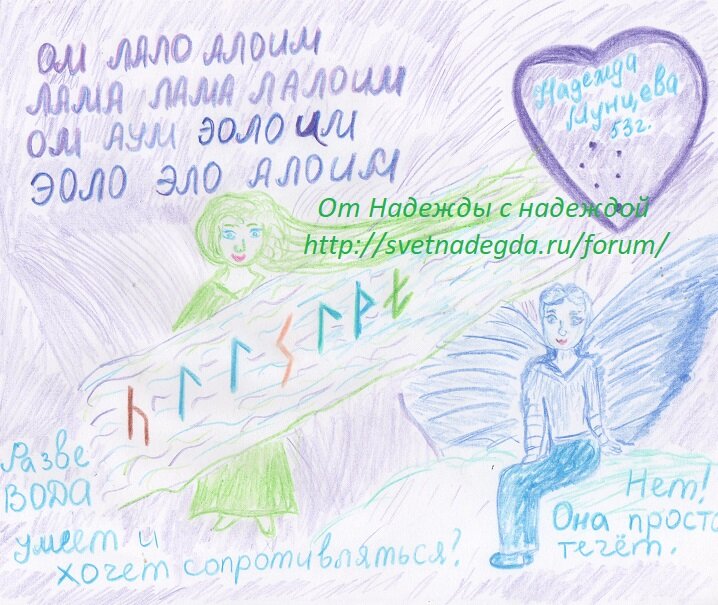 ОМ ЛАЛО АЛОИМ
ЛАМА ЛАМА ЛАЛОИМ
ОМ АУМ ЭОЛОИМ
ЭОЛО ЭЛО АЛОИМ
Надежда
Мунцева
53г.
От Надежды с надеждой
http://svetnadegda.ru/forum/
ᚢᛚᛚᛊᛚᚹ
Разве
ВОДА
умеет и
хочет сопротивляться?
Нет!
Она просто
течёт.